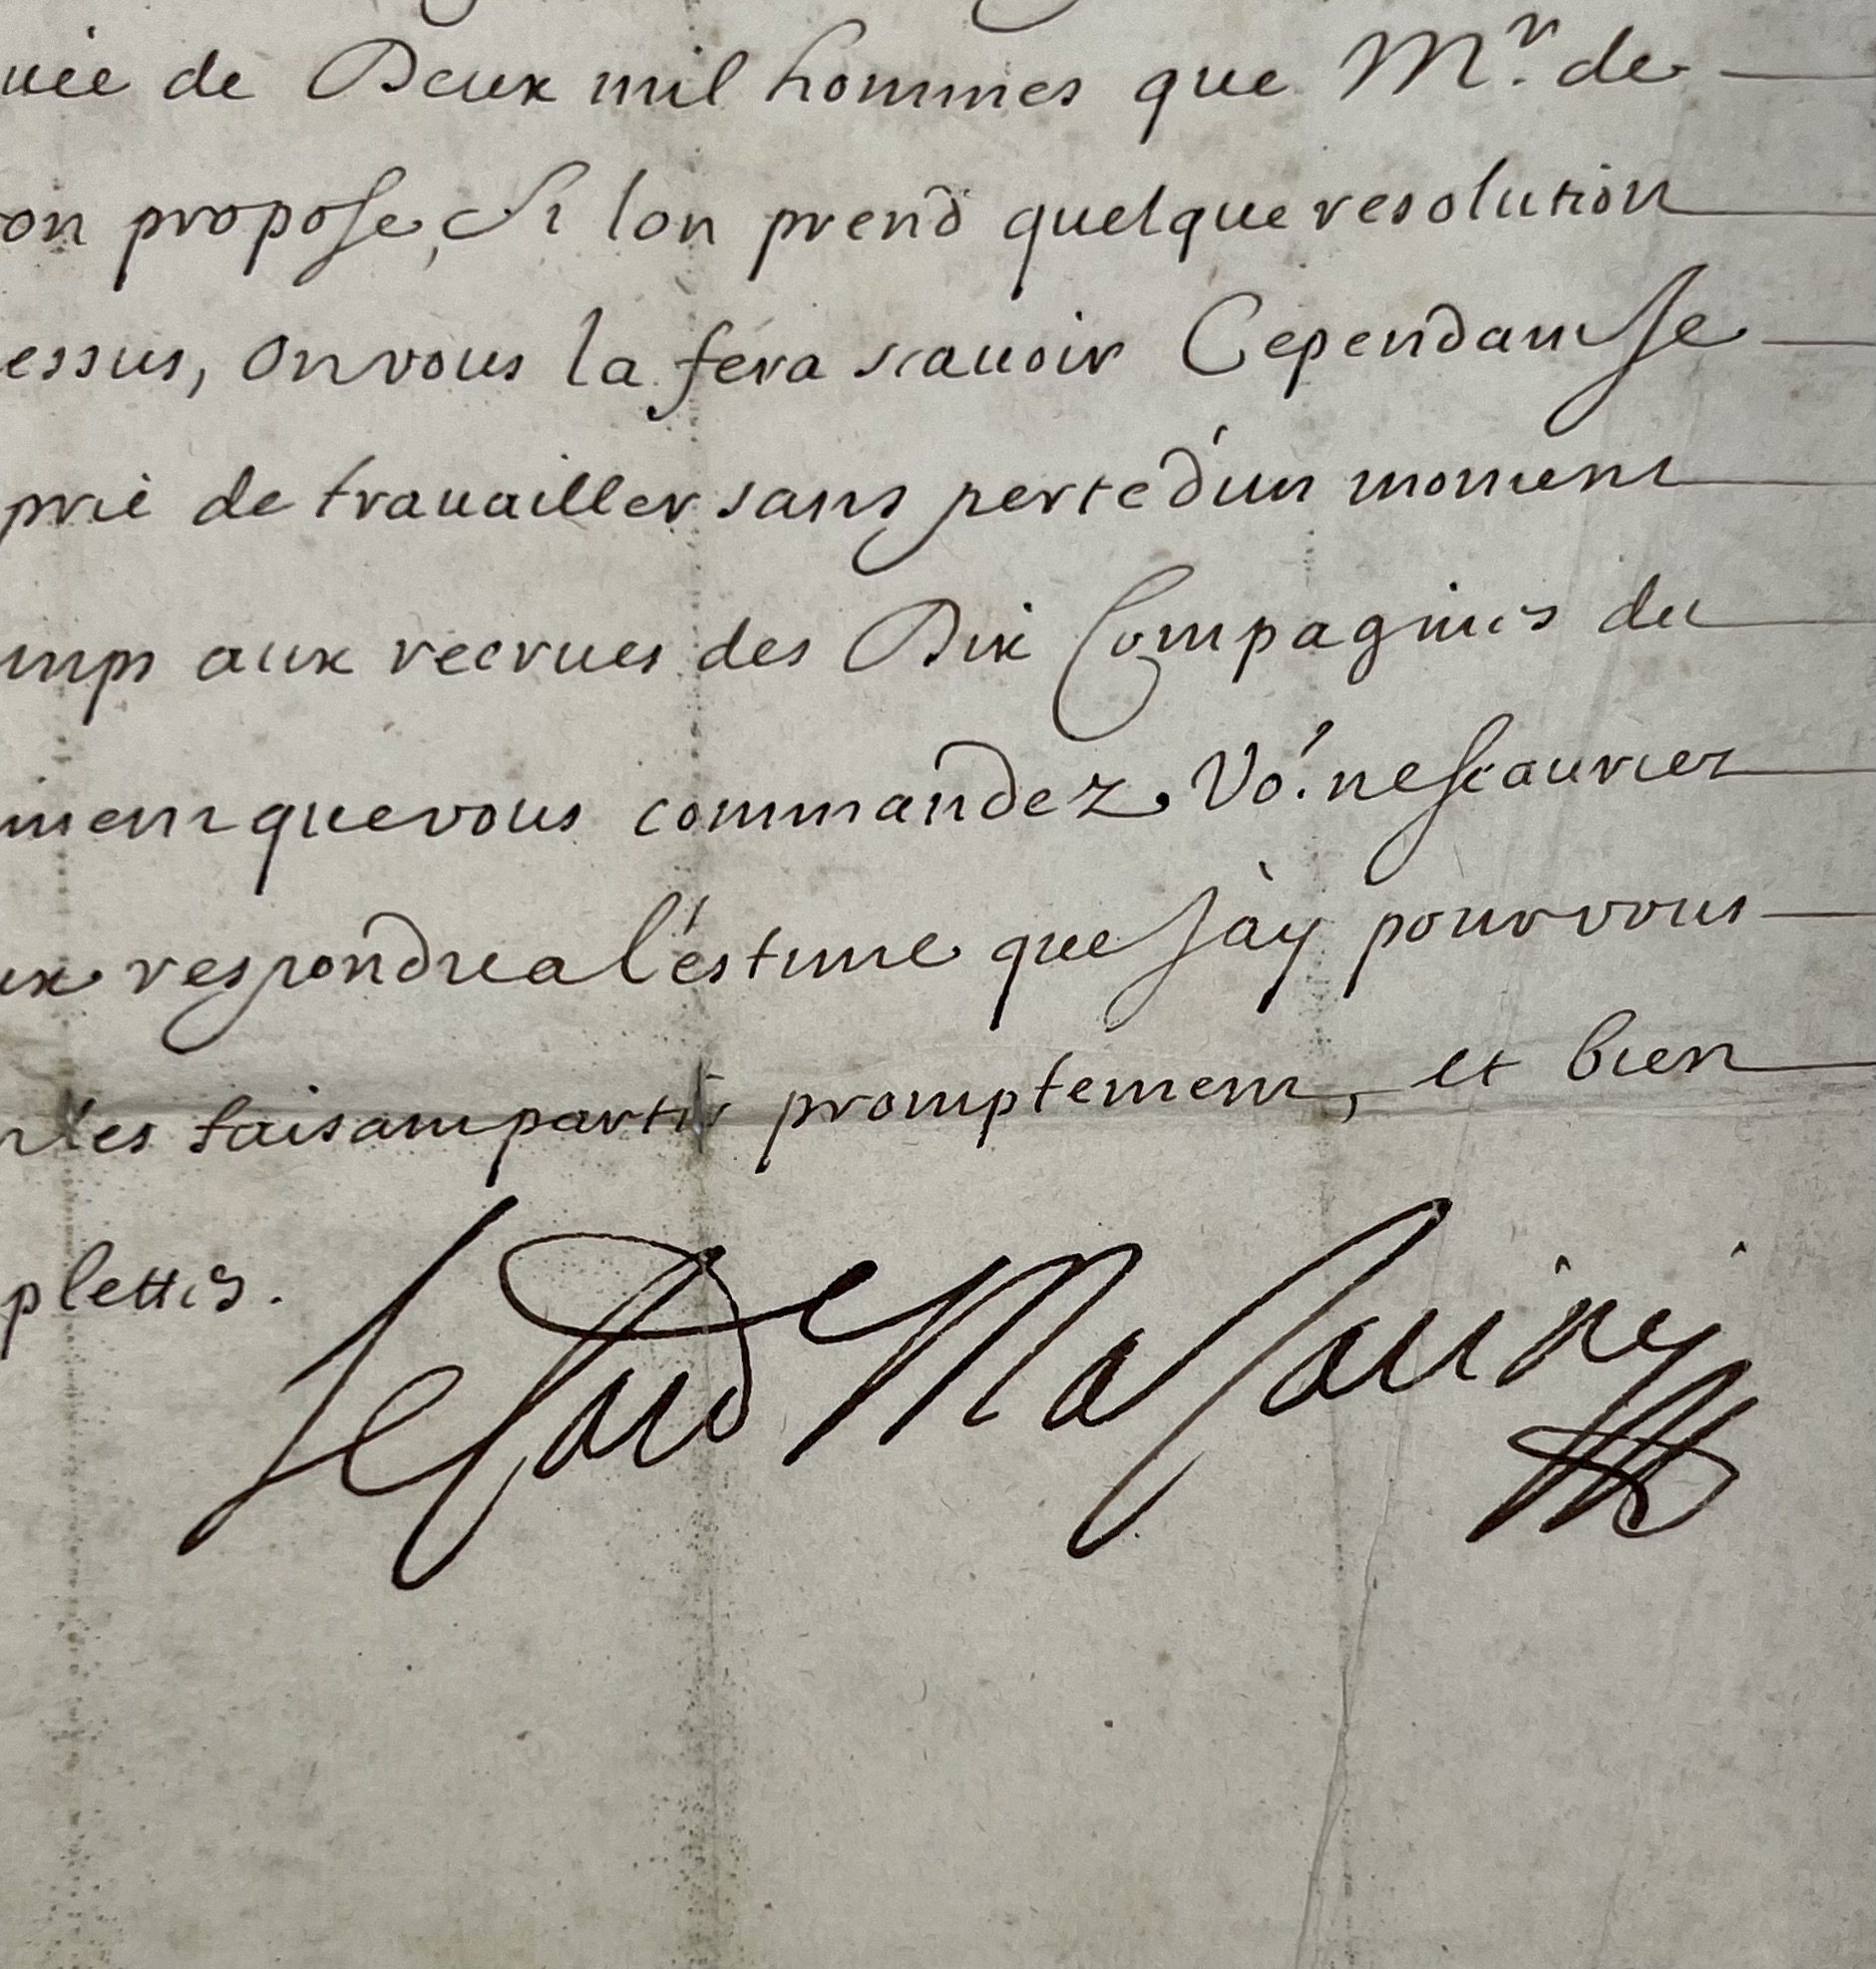 uée de Deux mil hommes que Mr. de
on propose, Si lon prend quelque resolution
essus, on vous la fera scauoir Cependant Je
prie de trauailler sans perte d'un moment
mps aux recrues des Dix Compagnies du
ment que vous commandez. Vo'. ne scauriez
ux respondre a l'éstime que J'ay pour vous
les faisant partir promptement, et bien
plettes.
le Card Mazarini